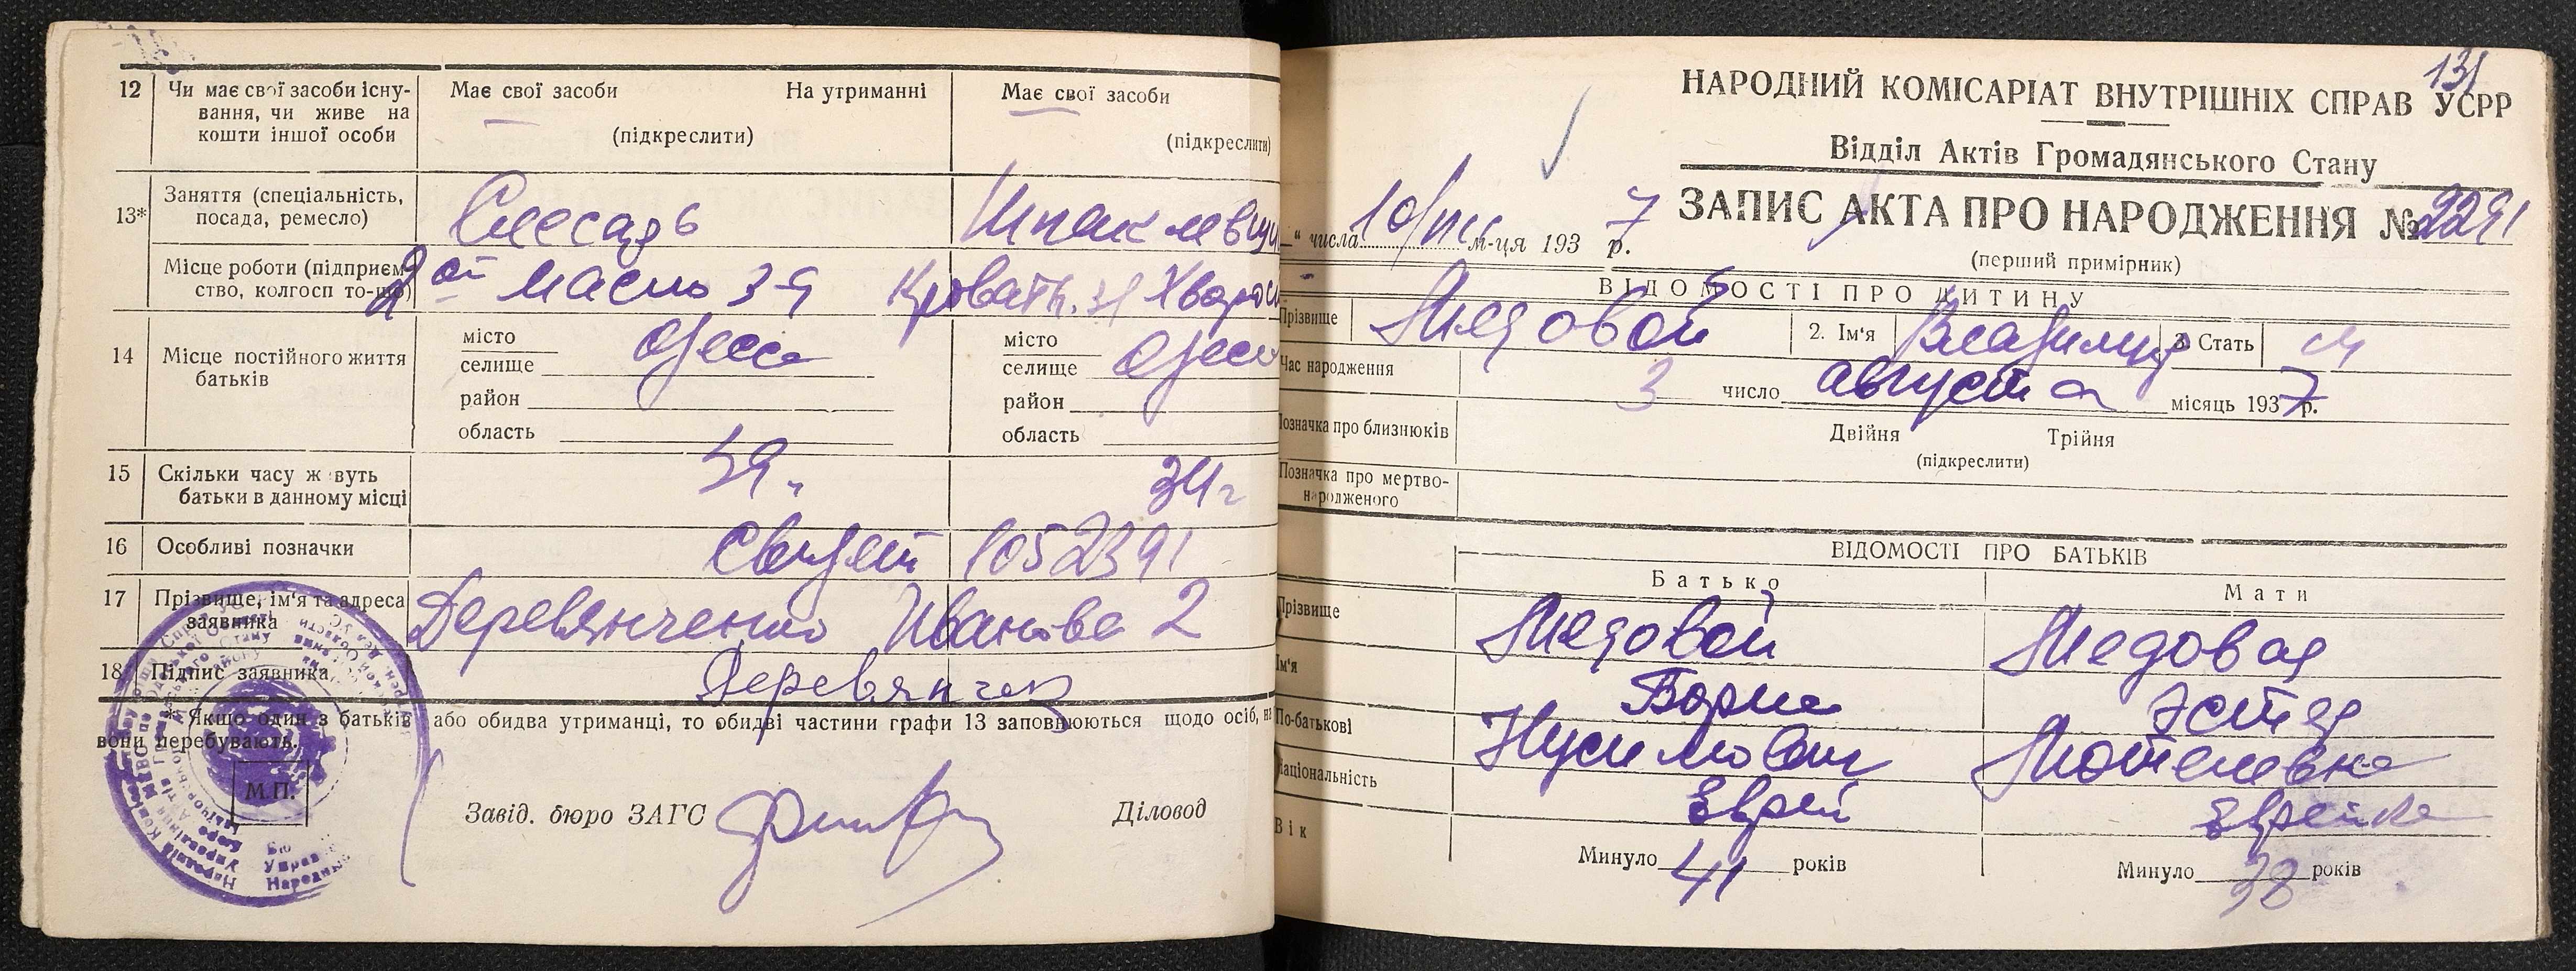 12 Чи має свої засоби існу-
вання, чи живе на
кошти іншої особи
Має свої засоби На утриманні
(підкреслити)
Має свої засоби
(підкреслити)
13* Заняття (спеціальність,
посада, ремесло)
Слесарь
Місце роботи (підприєм-
ство, колгосп то-що)
2ой масло з-д
Кровать. Хворост
14 Місце постійного життя
батьків
місто
селище Одесса
район
область
місто
селище Одесс
район
область
15 Скільки часу живуть
батьки в данному місці
34 г
16 Особливі позначки
1052391
17 Прізвище, ім'я та адреса
заявника
Деревянченко Иванова 2
18 Підпис заявника
Деревянчен
* Якщо один з батьків або обидва утриманці, то обидві частини графи 13 заповнюються щодо осіб, на
вони перебувають.
М.П.
Завід. бюро ЗАГС
Діловод
131
НАРОДНИЙ КОМІСАРІАТ ВНУТРІШНІХ СПРАВ УСРР
Відділ Актів Громадянського Стану
„ “ числа 10/ м-ця 1937 р.
ЗАПИС АКТА ПРО НАРОДЖЕННЯ № 2291
(перший примірник)
ВІДОМОСТІ ПРО ДИТИНУ
Прізвище Медовой 2. Ім'я Владимир 3. Стать м
Час народження 3 число августа місяць 1937 р.
Позначка про близнюків
Двійня Трійня
(підкреслити)
Позначка про мертво-
народженого
ВІДОМОСТІ ПРО БАТЬКІВ
Батько Мати
Прізвище Медовой Медовая
Ім'я Борис Эстер
По-батькові Нусимович Мотелевна
Національність Еврей Еврейка
Вік Минуло 41 років Минуло 38 років